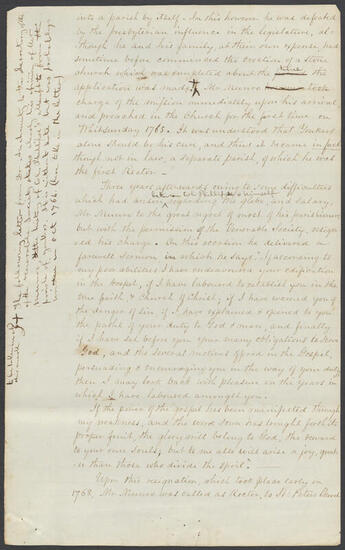 into a parish by itself. In this however he was defeated
by the presbyterian influence in the legislature, al-
though he and his family, at their own expense, had
sometime before commenced the erection of a stone
church which was completed about the time the
application was made. Mr Munro took
charge of the mission immediately upon his arrival,
and preached in the Church for the first time on
Whitsunday 1765. It was understood that Yonkers
alone should be his cure, and thus it became in fact
though not in law, a separate parish, of which he was
the first Rector.
Three years afterwards owing to some difficulties
which had arisen respecting the glebe, and salary,
Mr Munro to the great regret of most of his parishioners
but with the permission of the Venerable Society, resign-
ed his charge. On this occasion he delivered a
farewell Sermon, in which he says, "If according to
my poor abilities I have endeavored your edification
in the Gospel, if I have labored to establish you in the
true faith, & Church of Christ, if I have warned you of
the danger of sin, if I have explained & opened to you
the path of your duty to God & man, and finally
if I have set before you your many obligations to love
God, and the several motives offered in the Gospel,
persuading & encouraging you in the way of your duty,
then I may look back with pleasure on the years in
which I have laboured amongst you.
If the power of the gospel has been manifested through
my weakness, and the word sown has brought forth its
proper fruit, the glory will belong to God, the reward
to your own souls; but to me also will arise a joy, great-
er than those who divide the spoil."
Upon this resignation, which took place early in
1768, Mr Munro was called as Rector, to St Peters Church
The following letter from
to the Secretary of the